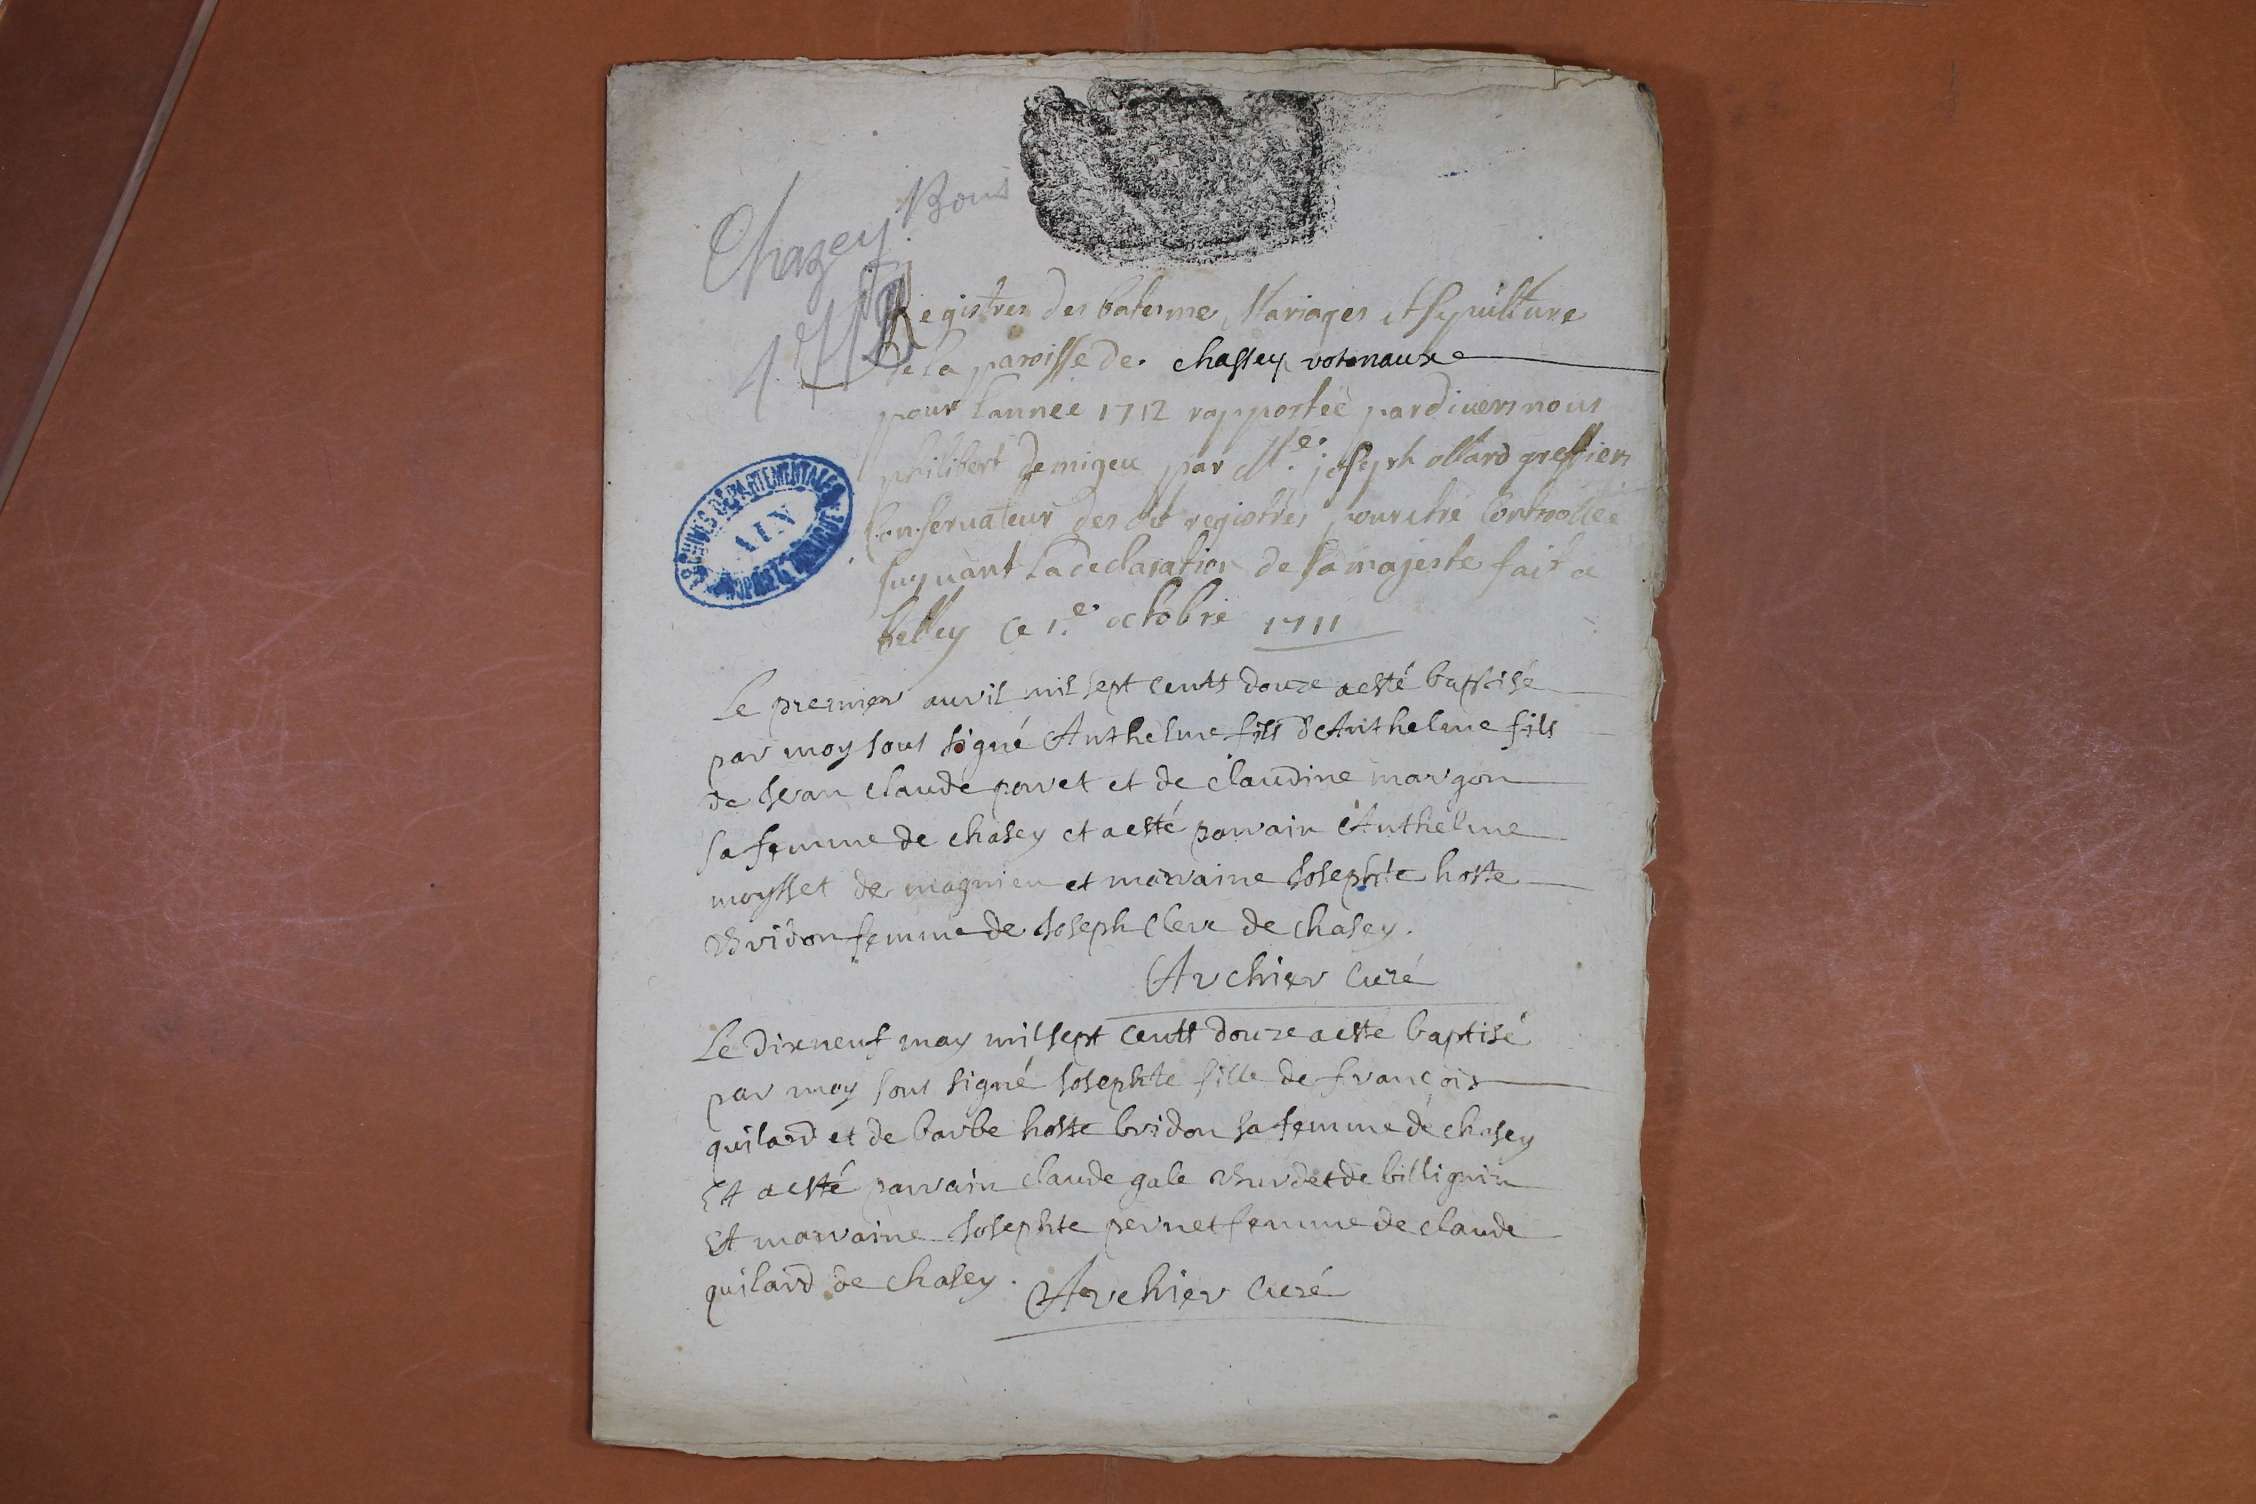 Chazey. Bons
1712
Registres des batesme Mariages et sepulture
de la paroisse de. chassey votonaux
pour l'annee 1712 rapportée pardivers nous
philibert Demigeu par Me. joseph ollard greffier
Conservateur des dit registres pour etre Controllée
suyvant La declaration de sa majeste fait a
belley Ce 1.e octobre 1711
ARCHIVES DÉPARTEMENTALES
AIN
PROPRIÉTÉ PUBLIQUE
Le premier avvil mil sept centt douze a esté baptisé
par moy sous signé Anthelme fils d'Anthelme fils
de Jean claude povet et de claudine margon
sa femme de chasey et a esté parrain Anthelme
moysset de magnieu et marraine Josephte hoste
Bridon femme de Joseph Clerc de chasey.
Archier Curé
Le Dixneuf may mil sept centt douze a esté baptisé
par moy sous signé Josephte fille de françois
quilard et de barbe hoste bridon sa femme de chasey
Et a esté parrain claude gale Burdet de billignin
Et marraine Josephte pernet femme de claude
quilard de chasey. Archier Curé